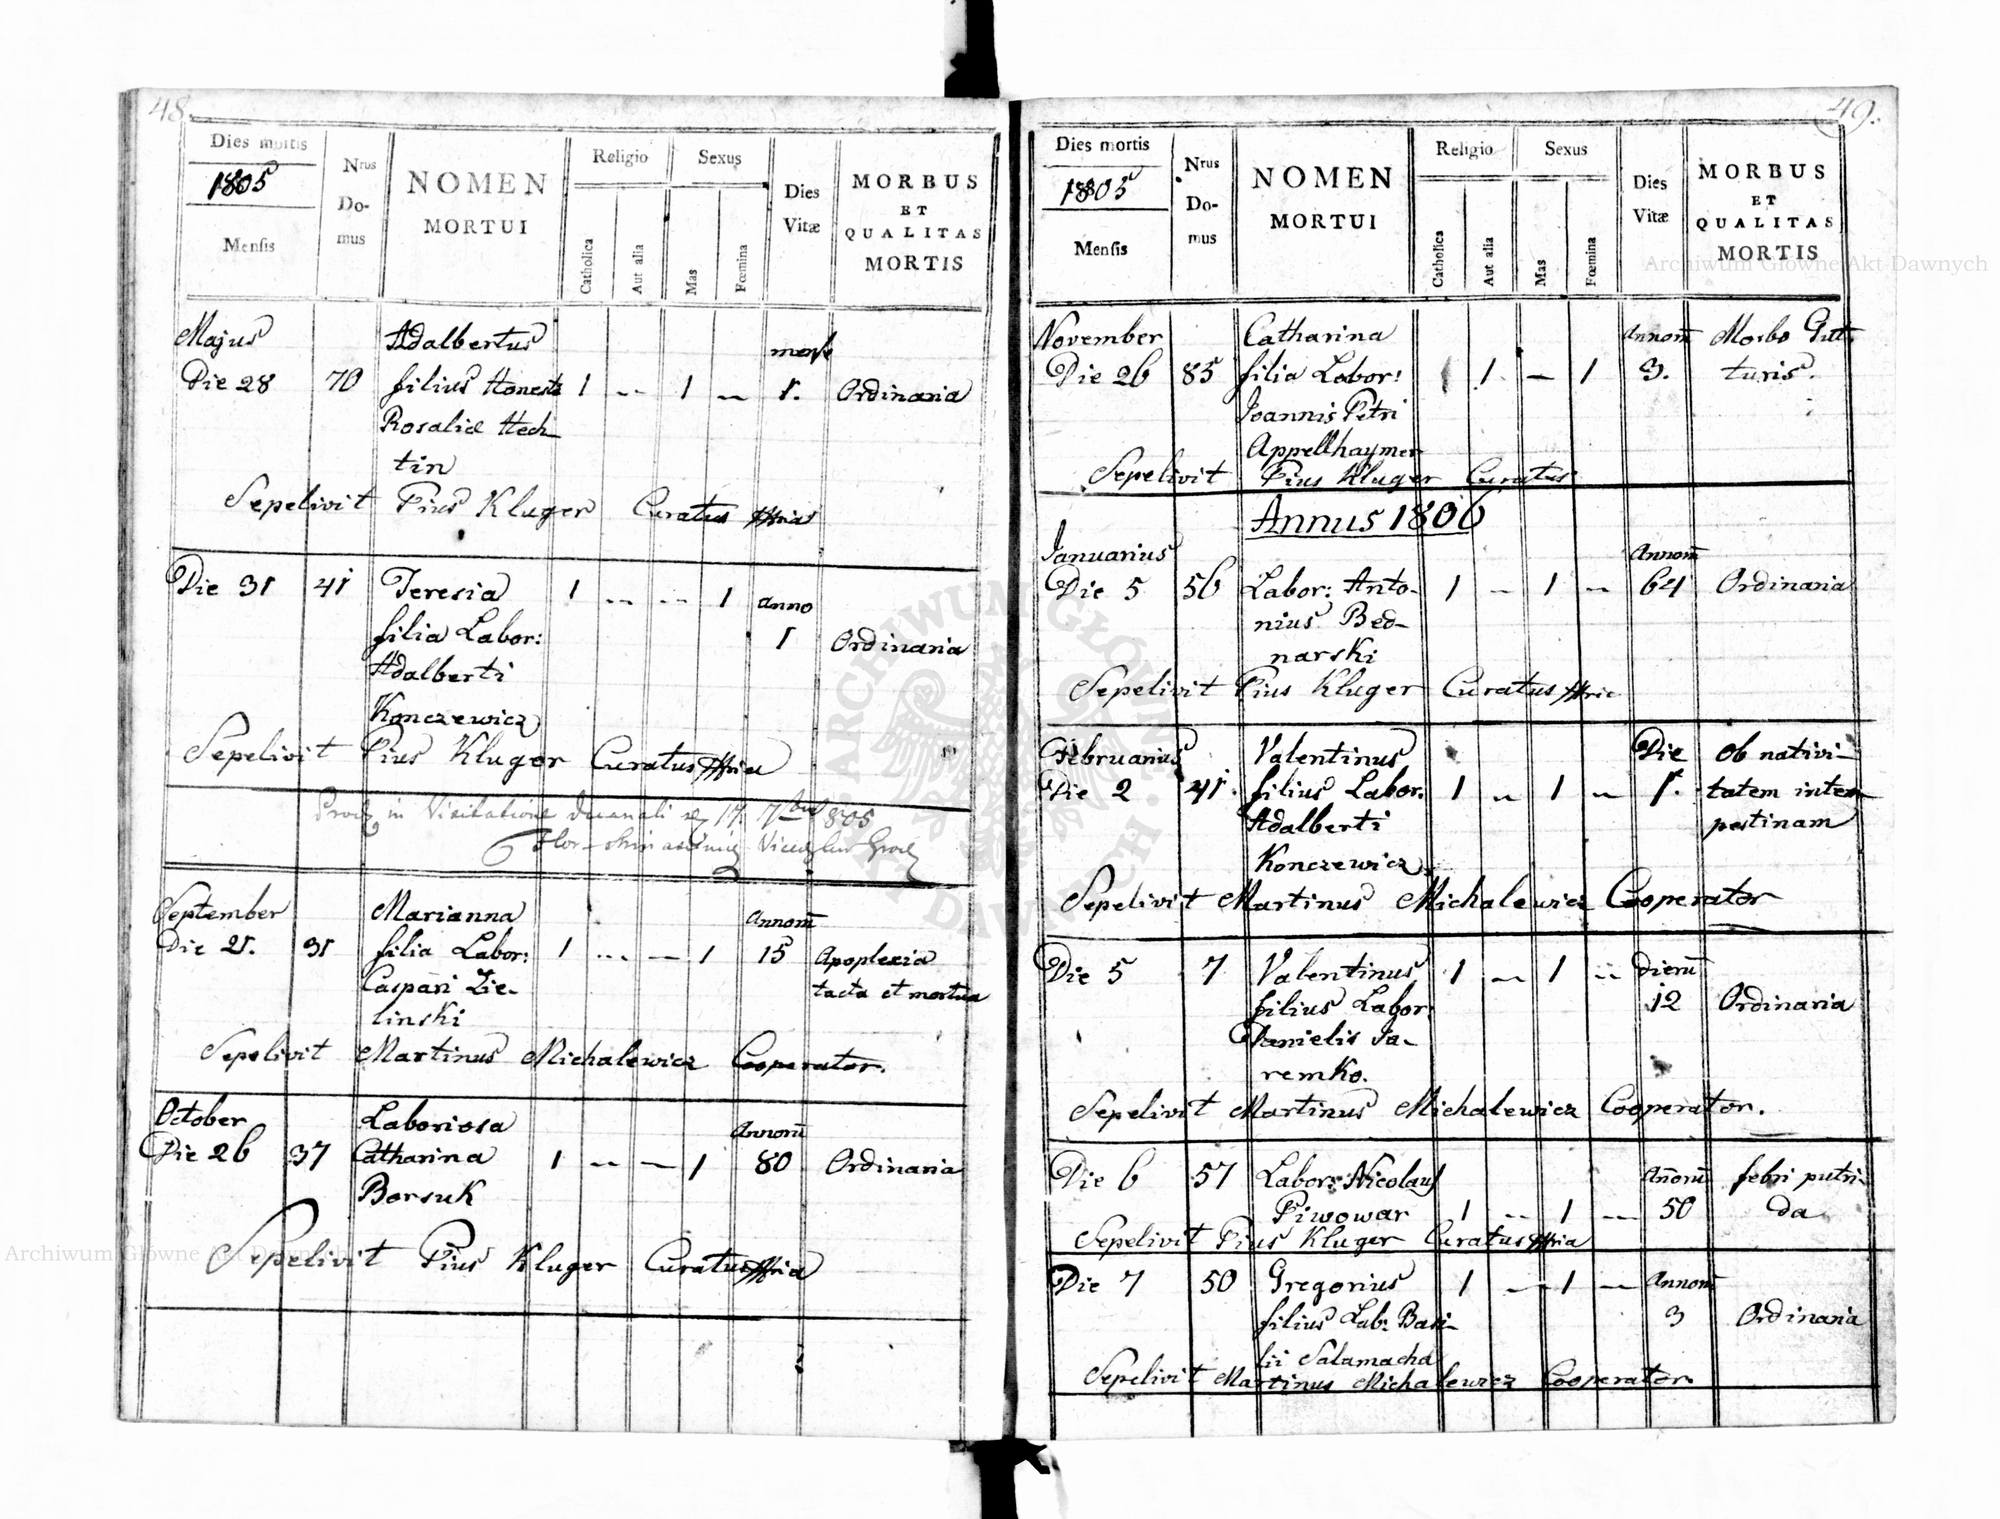 48.
Dies mortis
1805
Mensis
Nrus Do-mus
NOMEN
MORTUI
Religio
Catholica
Aut alia
Sexus
Mas
Fœmina
Dies Vitæ
MORBUS
ET
QUALITAS
MORTIS
Majus Adalbertus
Die 28 70 filius Honestæ 1 -- 1 -- 1. Ordinaria
Rosaliæ Hech-
tin
Sepelivit Pius Kluger Curatus
Die 31 41 Teresia 1 -- -- 1 anno
filia Labor: 1 Ordinaria
Adalberti
Konczewicz
Sepelivit Pius Kluger Curatus
in Visitatione Decanali 17. 7bris 805
September Marianna Annorū
Die 21. 31 filia Labor: 1 -- -- 1 15 Apoplexia
Caspari Zie- tacta et mortua
linski
Sepelivit Martinus Michalewicz Cooperator.
October Laboriosa Annorū
Die 26 37 Catharina 1 -- -- 1 80 Ordinaria
Borsuk
Sepelivit Pius Kluger Curatus
49.
Dies mortis
1805
Mensis
Nrus Do-mus
NOMEN
MORTUI
Religio
Catholica
Aut alia
Sexus
Mas
Fœmina
Dies Vitæ
MORBUS
ET
QUALITAS
MORTIS
November Catharina Annorū Morbo Gut-
Die 26 85 filia Labor: 1 - 1 3. turis.
Joannis Petri
Appellhaymer
Sepelivit Pius Kluger Curatus
Annus 1806
Januarius Annorū
Die 5 56 Labor: Anto- 1 - 1 -- 64 Ordinaria
nius Bed-
narski
Sepelivit Pius Kluger Curatus
Februarius Valentinus Die Ob nativi-
Die 2 41. filius Labor: 1 -- 1 -- 1. tatem intem
Adalberti pestinam
Konczewicz
Sepelivit Martinus Michalewicz Cooperator
Die 5 7 Valentinus 1 -- 1 -- dierū
filius Labor: 12 Ordinaria
Danielis Ja-
remko.
Sepelivit Martinus Michalewicz Cooperator.
Die 6 57 Labor: Nicolaus Añorū febri putri-
Piwowar 1 -- 1 -- 50 da
Sepelivit Pius Kluger Curatus
Die 7 50 Gregorius 1 -- 1 -- Annorū
filius Lab: Basi- 3 Ordinaria
lii Salamacha
Sepelivit Martinus Michalewicz Cooperator.
Archiwum Główne Akt Dawnych
Archiwum Główne Akt Dawnych
ARCHIWUM GŁÓWNE AKT DAWNYCH